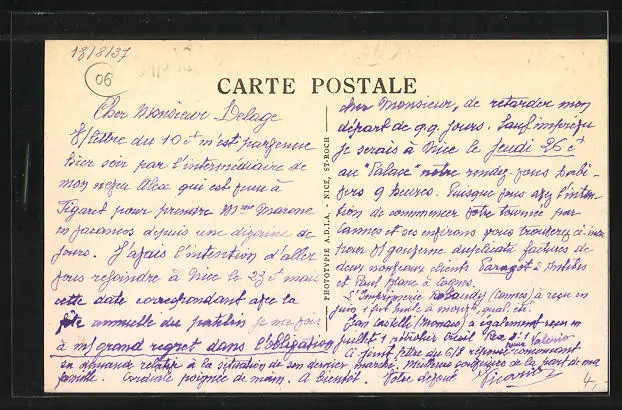 13/8/37
06
CARTE POSTALE
Cher Monsieur Delage
V/lettre du 10 ct n'est parvenue
hier soir par l'intermédiaire de
mon neveu Alex qui est venu à
Figaret pour prendre Mme Marone
en vacances depuis une dizaine de
jours. J'avais l'intention d'aller
vous rejoindre à Nice le 23 ct mais
cette date correspondant avec la
fête annuelle du patelin je me vois
à m/grand regret dans l'obligation
cher Monsieur, de retarder mon
départ de qq. jours. Sauf imprévu
je serais à Nice le Jeudi 26 ct
au "Palace" notre rendez-vous habi-
vers 9 heures. Puisque vous avez l'inten-
tion de commencer votre tournée par
Cannes et ses environs vous trouverez ci-
pour V/ gouverne duplicata factures de
deux nouveaux clients à Antibes
et Paul Franc à Cagnes.
L'Imprimerie (Cannes) a reçu en
juin 1 fût huile à
Jean (Monaco) a également reçu en
juillet 1
Ci joint lettre du 6/8 réponse concernant
sa demande relative à la situation de son dernier marché. Meilleurs de la part de ma
famille. Cordiale poignée de main. A bientôt. Votre dévoué
PHOTOTYPIE A.D.I.A. - NICE, ST-ROCH
4,